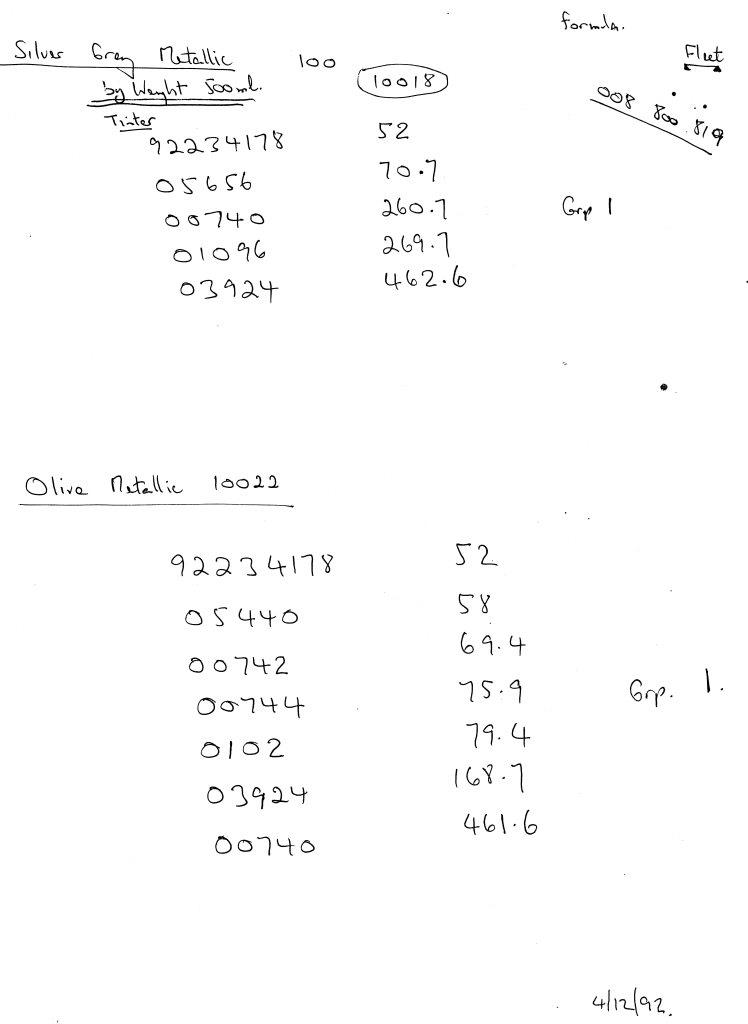 formula.
Silver Grey Metallic 100
10018
Fleet
by Weight 500ml.
008 800 819
Tinter
92234178 52
05656 70.7
00740 260.7 Grp 1
01096 269.7
03924 462.6
Olive Metallic 10022
92234178 52
05440 58
00742 69.4
00744 75.9 Grp. 1.
0102 79.4
03924 168.7
00740 461.6
4/12/92.